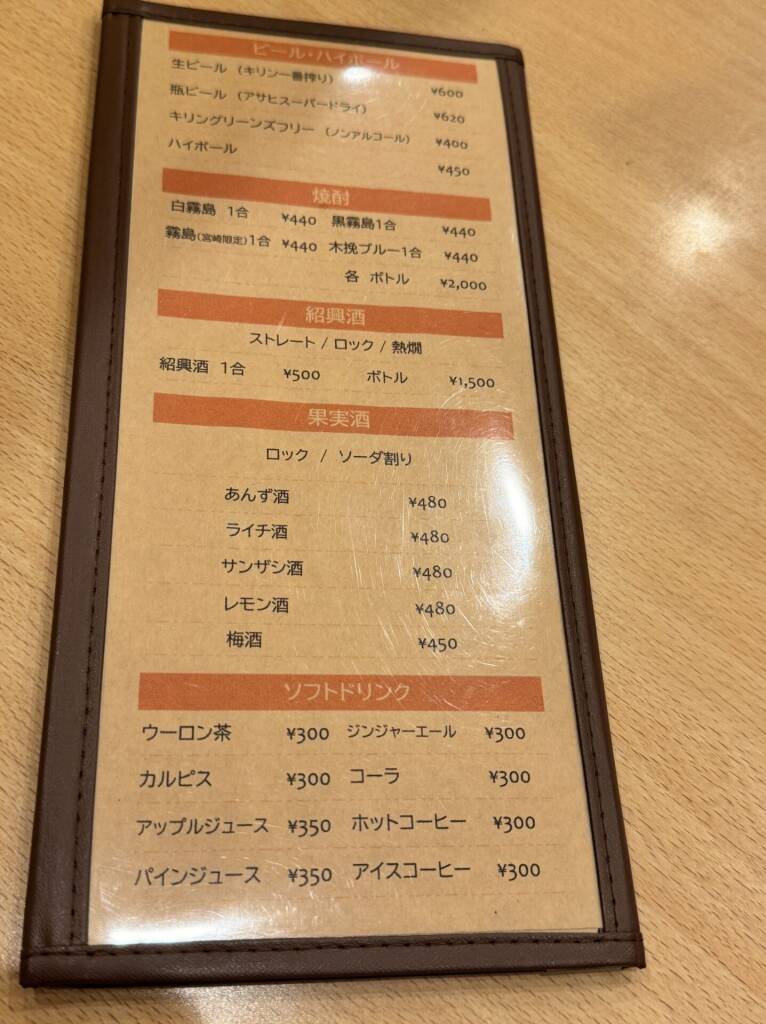 ビール・ハイボール
生ビール (キリン一番搾り) ¥600
瓶ビール (アサヒスーパードライ) ¥620
キリングリーンズフリー (ノンアルコール) ¥400
ハイボール ¥450
焼酎
白霧島 1合 ¥440 黒霧島1合 ¥440
霧島(宮崎限定)1合 ¥440 木挽ブルー1合 ¥440
各 ボトル ¥2,000
紹興酒
ストレート / ロック / 熱燗
紹興酒 1合 ¥500 ボトル ¥1,500
果実酒
ロック / ソーダ割り
あんず酒 ¥480
ライチ酒 ¥480
サンザシ酒 ¥480
レモン酒 ¥480
梅酒 ¥450
ソフトドリンク
ウーロン茶 ¥300 ジンジャーエール ¥300
カルピス ¥300 コーラ ¥300
アップルジュース ¥350 ホットコーヒー ¥300
パインジュース ¥350 アイスコーヒー ¥300